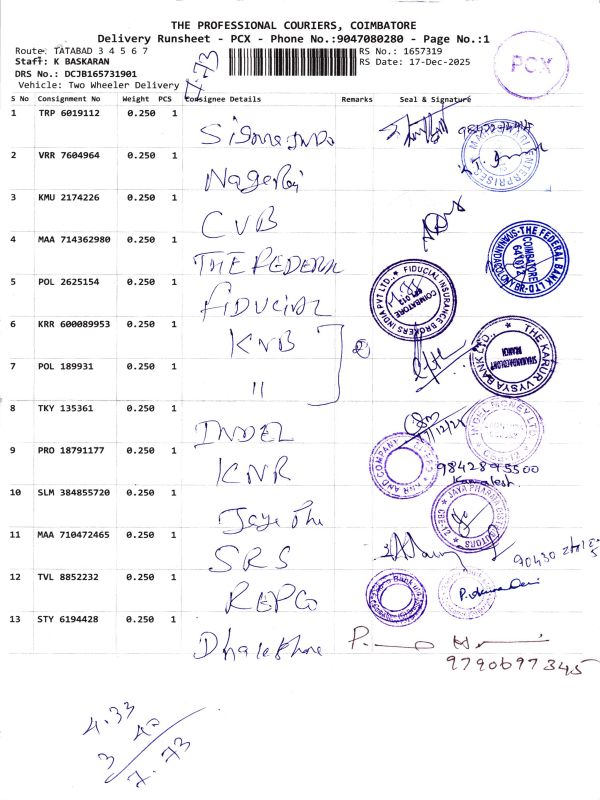 THE PROFESSIONAL COURIERS, COIMBATORE
Delivery Runsheet - PCX - Phone No.:9047080280 - Page No.:1
Route: TATABAD 3 4 5 6 7
Staff: K BASKARAN
DRS No.: DCJB165731901
Vehicle: Two Wheeler Delivery
7.73
RS No.: 1657319
RS Date: 17-Dec-2025
PCX
S No Consignment No Weight PCS Consignee Details Remarks Seal & Signature
1 TRP 6019112 0.250 1
2 VRR 7604964 0.250 1
3 KMU 2174226 0.250 1 CVB
4 MAA 714362980 0.250 1 THE FEDERAL
THE FEDERAL BANK LTD
COIMBATORE
5 POL 2625154 0.250 1 FIDUCIAL
FIDUCIAL INSURANCE BROKERS INDIA PVT LTD.
COIMBATORE
6 KRR 600089953 0.250 1 KVB
2
7 POL 189931 0.250 1 "
THE KARUR VYSYA BANK LTD.
BRANCH
8 TKY 135361 0.250 1 INDEL
INDEL MONEY LTD
9 PRO 18791177 0.250 1 KNR
9842895500
10 SLM 384855720 0.250 1
11 MAA 710472465 0.250 1 SRS
12 TVL 8852232 0.250 1 REPCO
13 STY 6194428 0.250 1
9790697345
4.33
3.40
7.73